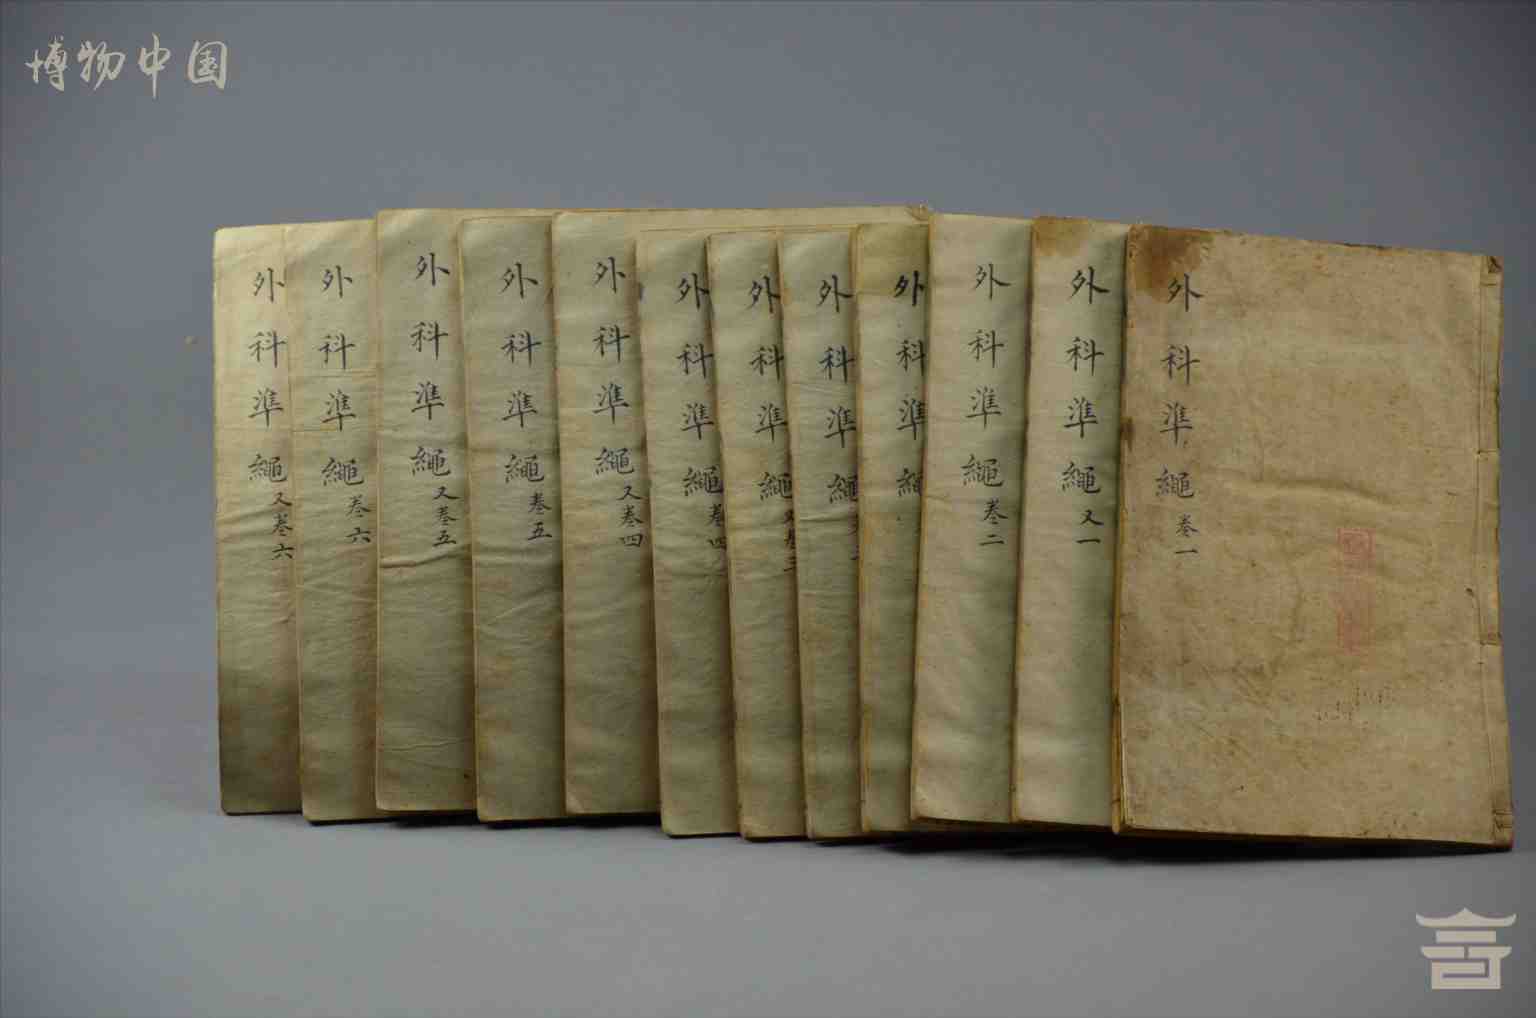 博物中国
外科準繩卷一
外科準繩又一
外科準繩卷二
外科準繩
外科準繩卷
外科準繩又卷三
外科準繩卷四
外科準繩又卷四
外科準繩卷五
外科準繩又卷五
外科準繩卷六
外科準繩又卷六